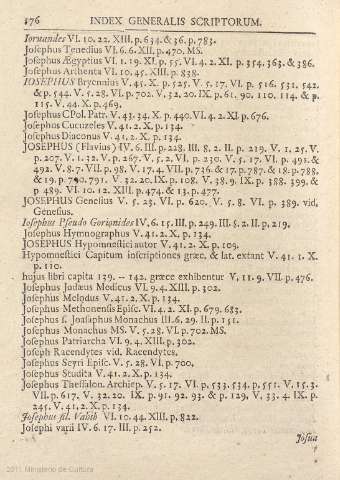 176 INDEX GENERALIS SCRIPTORUM.
Iornandes VI. 10. 22. XIII. p. 634. & 36. p. 783.
Josephus Tenedius VI. 6. 6. XII. p. 470. MS.
Josephus Ægyptius VI. 1. 19. XI. p. 55. VI. 4. 2. XI. p. 354. 363. & 386.
Josephus Arthenta VI. 10. 45. XIII. p. 838.
JOSEPHUS Bryennius V. 45. X. p. 525. V. 5. 17. VI. p. 516. 531. 542.
& p. 544. V. 5. 28. VI. p. 702. V. 32. 20. IX. p. 61. 90. 110. 114. & p.
115. V. 44. X. p. 469.
Josephus CPol. Patr. V. 43. 34. X. p. 440. VI. 4. 2. XI. p. 676.
Josephus Cucuzeles V. 41. 2. X. p. 134.
Josephus Diaconus V. 41. 2. X. p. 134.
JOSEPHUS (Flavius) IV. 6. III. p. 228. III. 8. 2. II. p. 219. V. 1. 25. V.
p. 207. V. 1. 32. V. p. 267. V. 5. 2. VI. p. 230. V. 5. 17. VI. p. 491. &
492. V. 8. 7. VII. p. 98. V. 17. 4. VII. p. 726. & 17. p. 787. & 18. p. 788.
& 19. p. 790. 791. V. 32. 20. IX. p. 108. V. 38. 9. IX. p. 388. 399. &
p. 489. VI. 10. 12. XIII. p. 474. & 13. p. 477.
JOSEPHUS Genesius V. 5. 23. VI. p. 620. V. 5. 8. VI. p. 389. vid.
Genesius.
Iosephus Pseudo Gorionides IV. 6. 15. III. p. 249. III. 8. 2. II. p. 219.
Josephus Hymnographus V. 41. 2. X. p. 134.
JOSEPHUS Hypomnestici autor V. 41. 2. X. p. 109.
Hypomnestici Capitum inscriptiones græce, & lat. extant V. 41. 1. X.
p. 110.
hujus libri capita 139. -- 142. græce exhibentur V. 11. 9. VII. p. 476.
Josephus Judæus Medicus VI. 9. 4. XIII. p. 302.
Josephus Melodus V. 41. 2. X. p. 134.
Josephus Methonensis Episc. VI. 4. 2. XI. p. 679. 683.
Josephus s. Joasiphus Monachus III. 6. 29. II. p. 151.
Josephus Monachus MS. V. 5. 28. VI. p. 702. MS.
Josephus Patriarcha VI. 9. 4. XIII. p. 302.
Joseph Racendytes vid. Racendytes.
Josephus Scyri Episc. V. 5. 28. VI. p. 700.
Josephus Studita V. 41. 2. X. p. 134.
Josephus Thessalon. Archiep. V. 5. 17. VI. p. 533. 534. p. 551. V. 15. 3.
VII. p. 617. V. 32. 20. IX. p. 91. 92. 93. & p. 129. V. 33. 4. IX. p.
245. V. 41. 2. X. p. 134.
Josephus fil. Vahib VI. 10. 44. XIII. p. 822.
Josephi varii IV. 6. 17. III. p. 252.
Josua
2011 Ministerio de Cultura